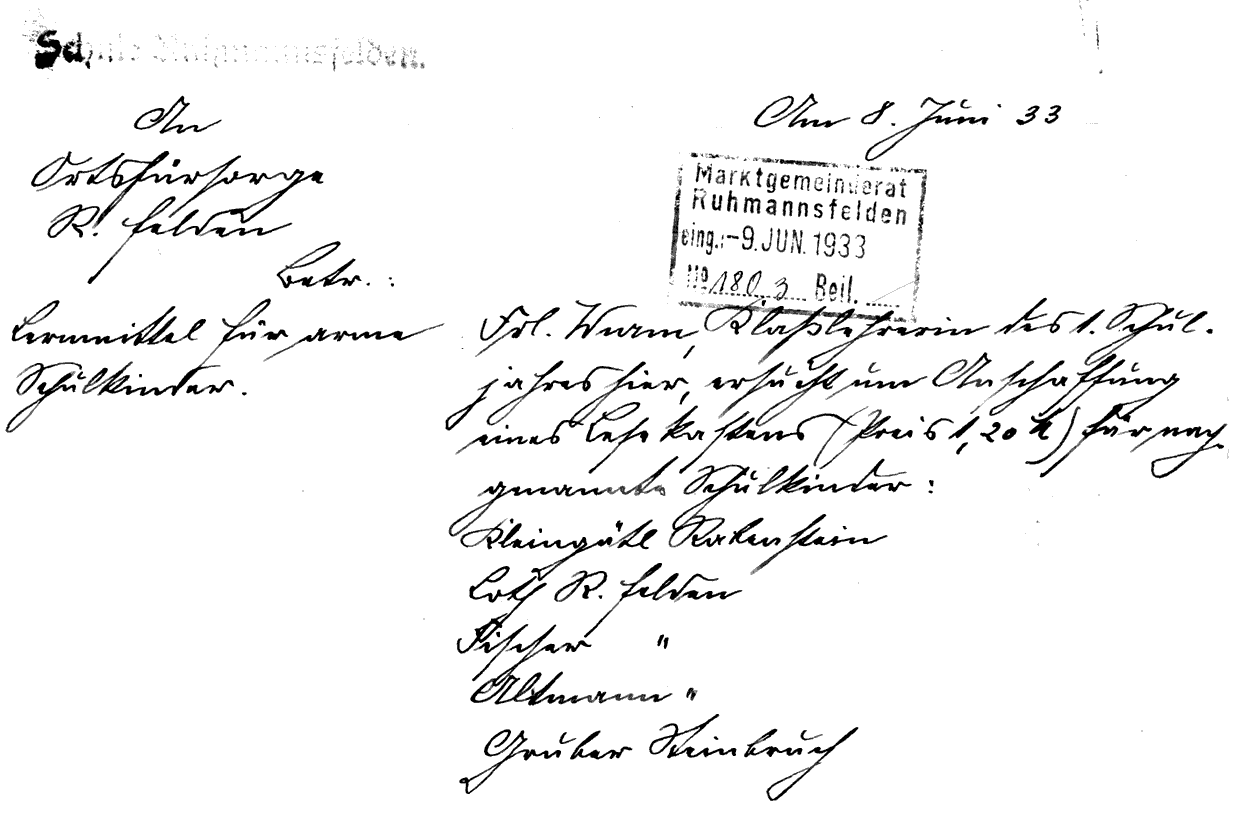 Schule Ruhmannsfelden.
Am 8. Juni 33
An
Ortsfürsorge
R. felden
Betr.:
Lernmittel für arme
Schulkinder.
Marktgemeinderat
Ruhmannsfelden
eing.: -9. JUN. 1933
No 1803 Beil.
Frl. Wurm, Klaßlehrerin des 1. Schul-
jahres hier, ersucht um Anschaffung
eines Lesekastens (Preis 1,20 M) für nach-
genannte Schulkinder:
Kleingütl Rabenstein
Loth R. felden
Fischer "
Altmann "
Gruber Steinbruch